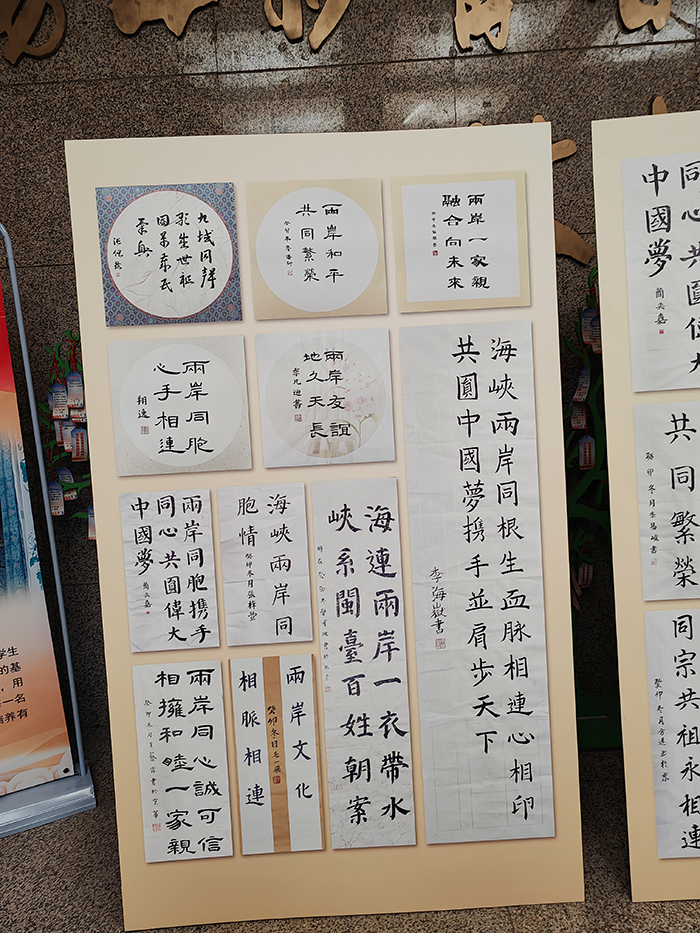 九域同聲
兩岸和平
共同繁榮
兩岸一家親
融合向未來
兩岸同胞
心手相連
翔逸
兩岸友誼
地久天長
李凡迪書
海峽兩岸同根生血脈相連心相印
共圓中國夢携手並肩步天下
李海嶽書
兩岸同胞携手
同心共圓偉大
中國夢
海峽兩岸同
胞情
癸卯冬月張梓萱
海連兩岸一衣帶水
峽系閩臺百姓朝案
兩岸同心誠可信
相擁和睦一家親
兩岸文化
相脈相連
癸卯冬日毛一飛
同心共圓偉大
中國夢
共同繁榮
同宗共祖永相連
学生
的基
，用
一名
培养有